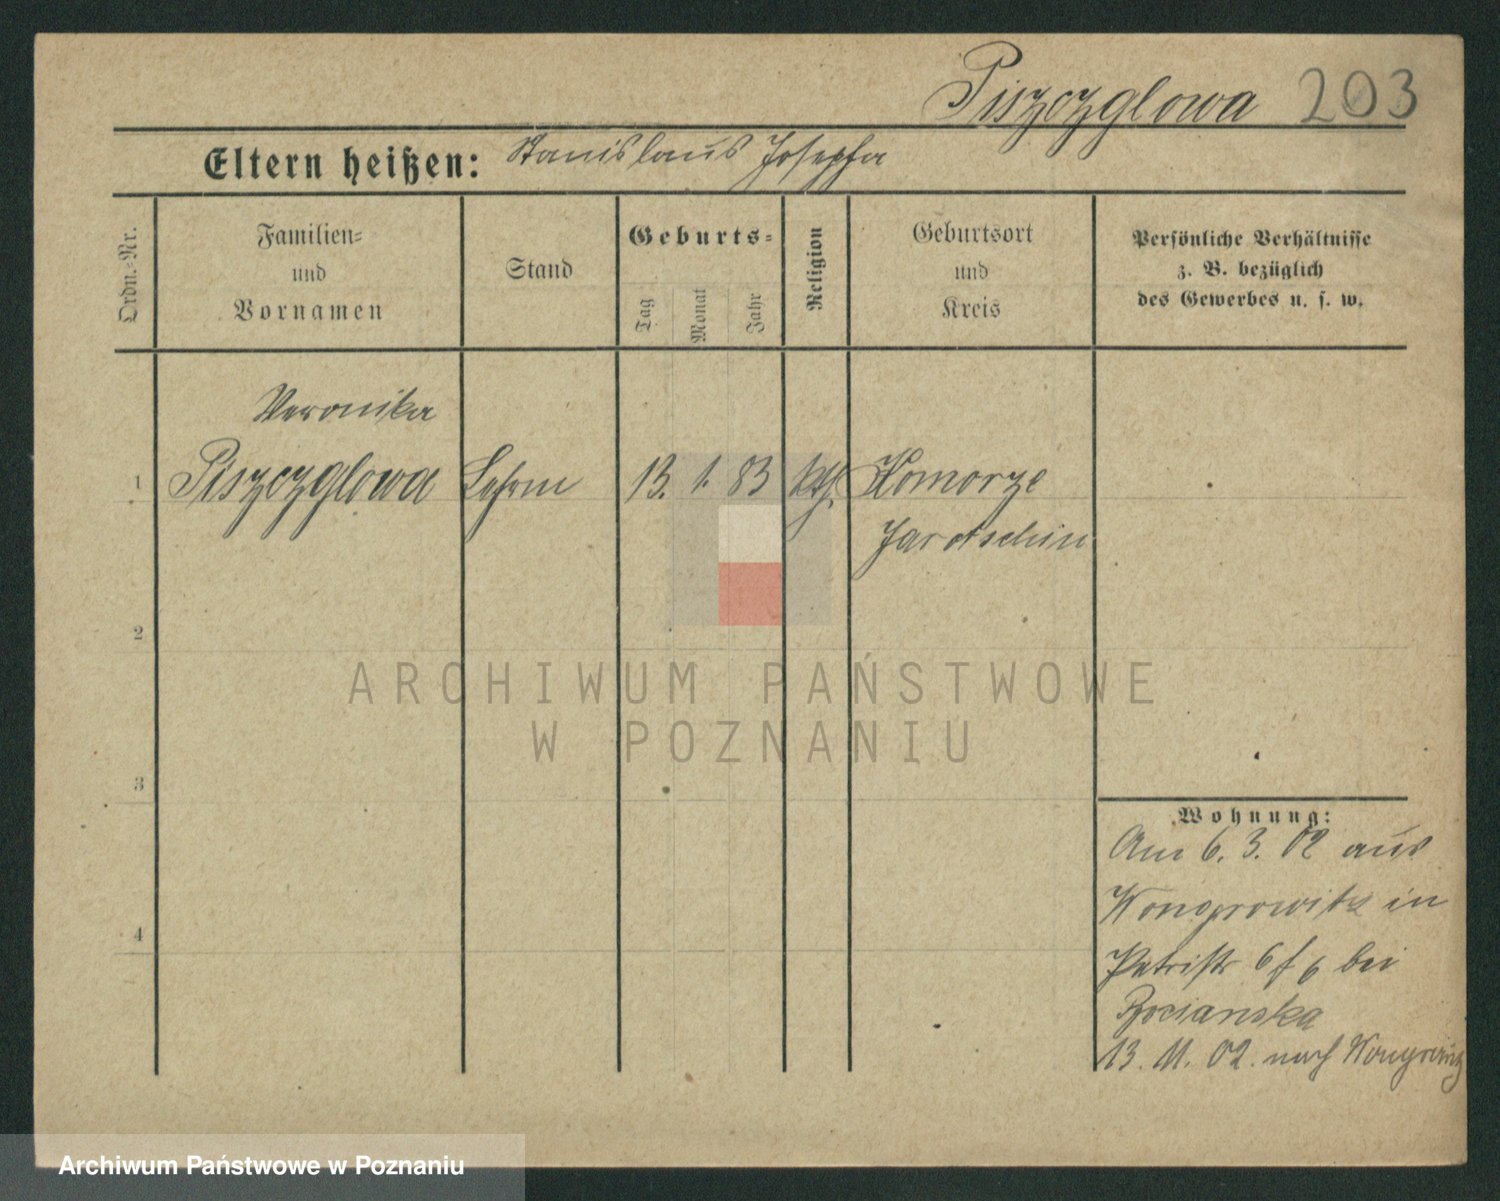 Piszczyglowa 203
Eltern heißen: Stanislaus Josepha
Ordn.-Nr.
Familien-
und
Vornamen
Stand
Geburts-
Tag
Monat
Jahr
Religion
Geburtsort
und
Kreis
Persönliche Verhältnisse
z. B. bezüglich
des Gewerbes u. s. w.
Veronika
1 Piszczyglowa 13. 1. 83 kth. Komorze
Jarotschin
2
3
4
Wohnung:
Am 6. 3. 02 aus
Wongrowitz in
Petristr 6 bei
Bocianska
13. 11. 02. nach Wongrowitz
ARCHIWUM PAŃSTWOWE
W POZNANIU
Archiwum Państwowe w Poznaniu